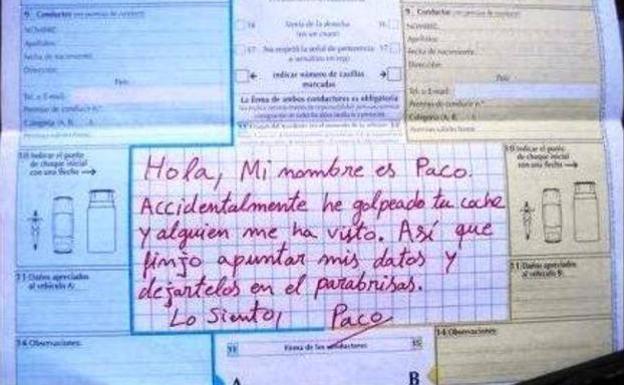 9 Conductor
NOMBRE:
Apellidos:
Fecha de nacimiento:
Dirección:
País:
Tel. o E-mail:
Permiso de conducir n.º
Categoría (A, B,
16
Venía de la derecha
16
(en un cruce)
17
No respetó la señal de preferencia
17
o semáforo en rojo
indicar número de casillas
marcadas
La firma de ambos conductores es obligatoria
9 Conductor
NOMBRE:
Apellidos:
Fecha de nacimiento:
Dirección:
País:
Tel. o E-mail:
Permiso de conducir n.º
Categoría (A, B,
10 Indicar el punto
de choque inicial
con una flecha
Hola, Mi nombre es Paco.
Accidentalmente he golpeado tu coche
y alguien me ha visto. Así que
finjo apuntar mis datos y
dejartelos en el parabrisas.
Lo siento, Paco
10 Indicar el punto
de choque inicial
con una flecha
11 Daños apreciados
al vehículo A:
11 Daños apreciados
al vehículo B:
14 Observaciones:
14 Observaciones:
15
Firma de los conductores
15
A
B